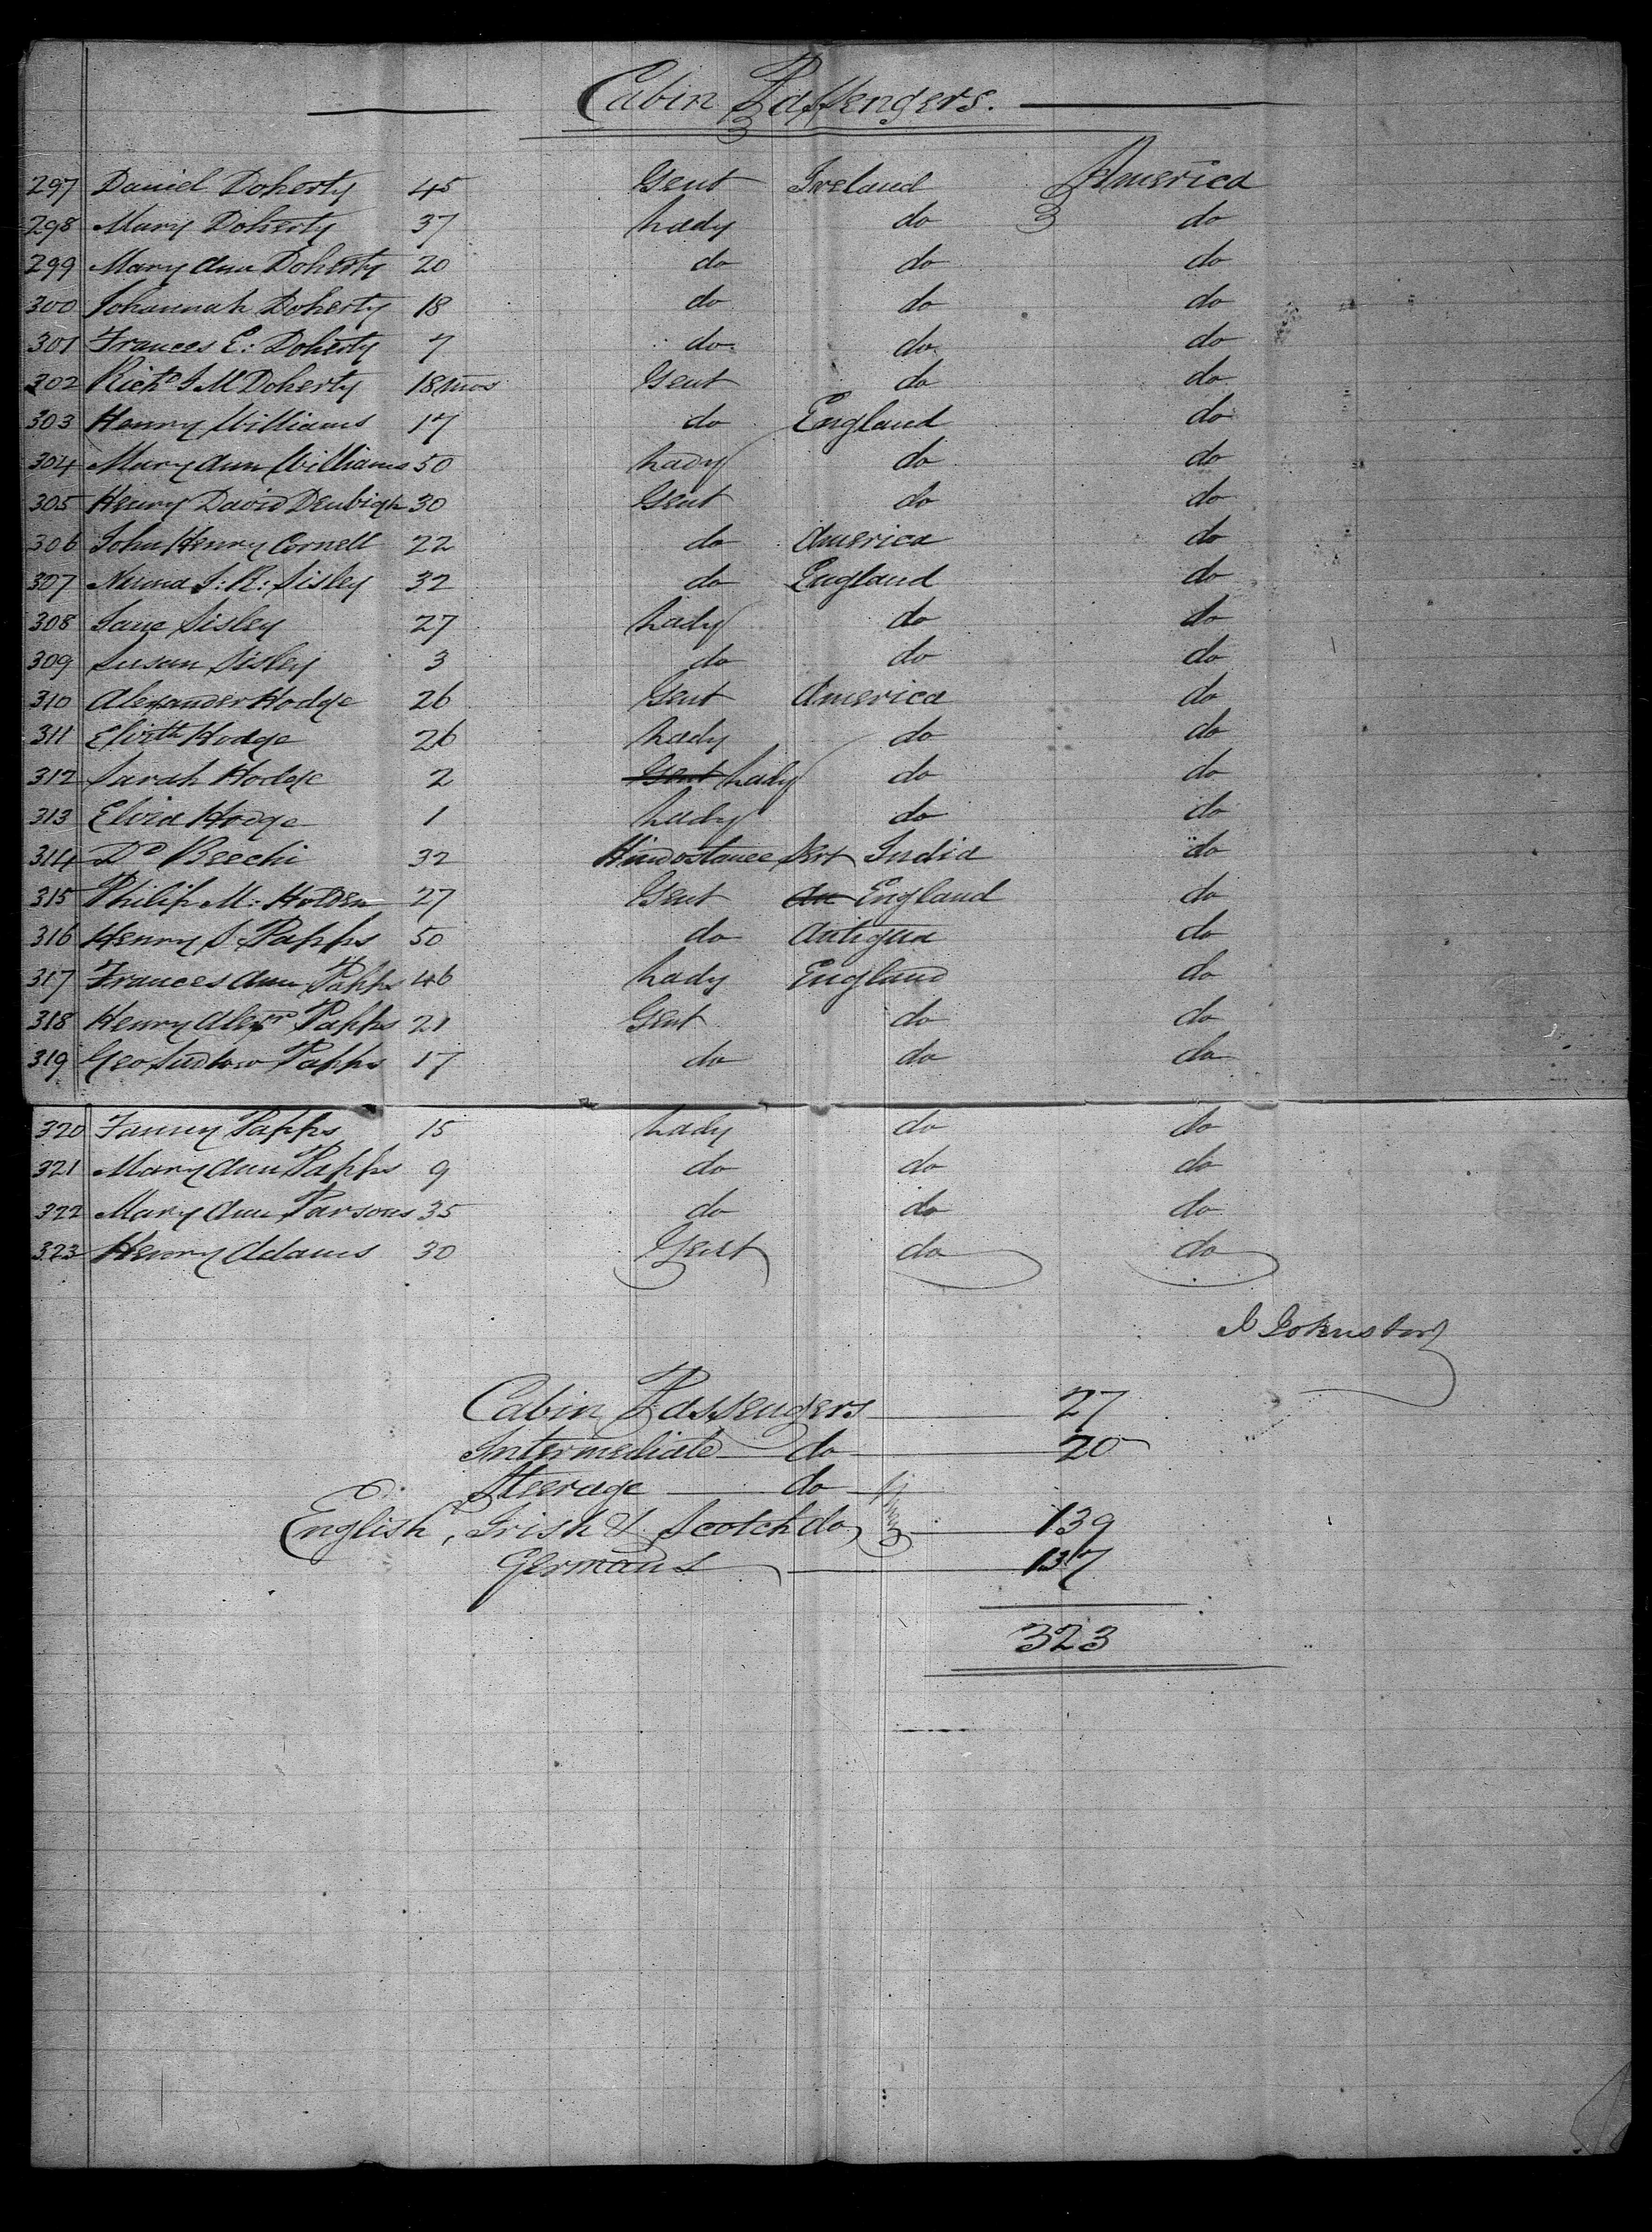 Cabin Passengers.
297 Daniel Doherty 45 Gent Ireland America
298 Mary Doherty 37 Lady do do
299 Mary Ann Doherty 20 do do do
300 Johannah Doherty 18 do do do
301 Frances E: Doherty 7 do do do
302 Richd J M Doherty 18 mos Gent do do
303 Henry Williams 17 do England do
304 Mary Ann Williams 50 Lady do do
305 Henry David Denbigh 30 Gent do do
306 John Henry Cornell 22 do America do
307 J: R: Sisley 32 do England do
308 Jane Sisley 27 Lady do do
309 Susan Sisley 3 do do do
310 Alexander Hodge 26 Gent America do
311 Hodge 26 Lady do do
312 Sarah Hodge 2 Gent Lady do do
313 Hodge 1 Lady do do
314 Beechi 32 India do
315 Philip M: Holden 27 Gent do England do
316 Henry S Papps 50 do Antigua do
317 Frances Ann Papps 46 Lady England do
318 Henry Alexr Papps 21 Gent do do
319 Geo Ludlow Papps 17 do do do
320 Fanny Papps 15 Lady do do
321 Mary Ann Papps 9 do do do
322 Mary Ann Parsons 35 do do do
323 Henry Adams 30 Gent do do
Johnston
Cabin Passengers 27
Intermediate do 20
Steerage do
English, Irish & Scotch do 139
Germans 137
323